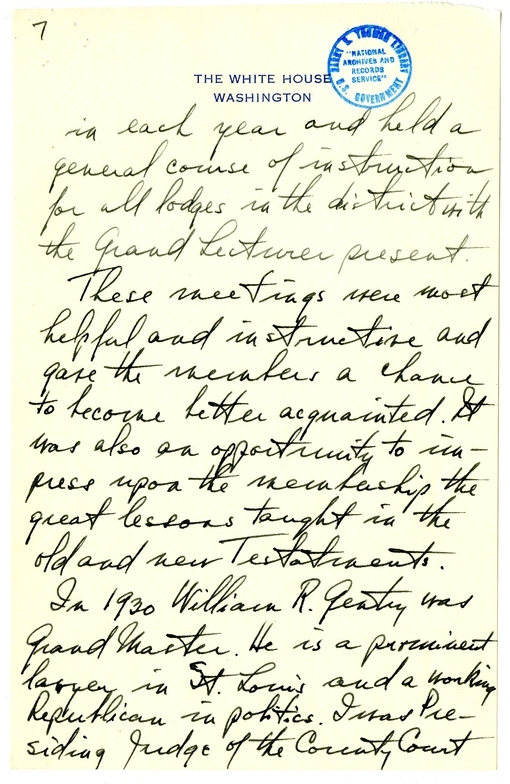 7
HARRY S. TRUMAN LIBRARY
"NATIONAL
ARCHIVES AND
RECORDS
SERVICE"
U.S. GOVERNMENT
THE WHITE HOUSE
WASHINGTON
in each year and held a
general course of instruction
for all lodges in the district with
the Grand Lecturer present.
These meetings were most
helpful and instructive and
gave the members a chance
to become better acquainted. It
was also an opportunity to im-
press upon the membership the
great lessons taught in the
old and new Testatments.
In 1930 William R. Gentry was
Grand Master. He is a prominent
lawyer in St. Louis and a working
Republican in politics. I was Pre-
siding Judge of the County Court